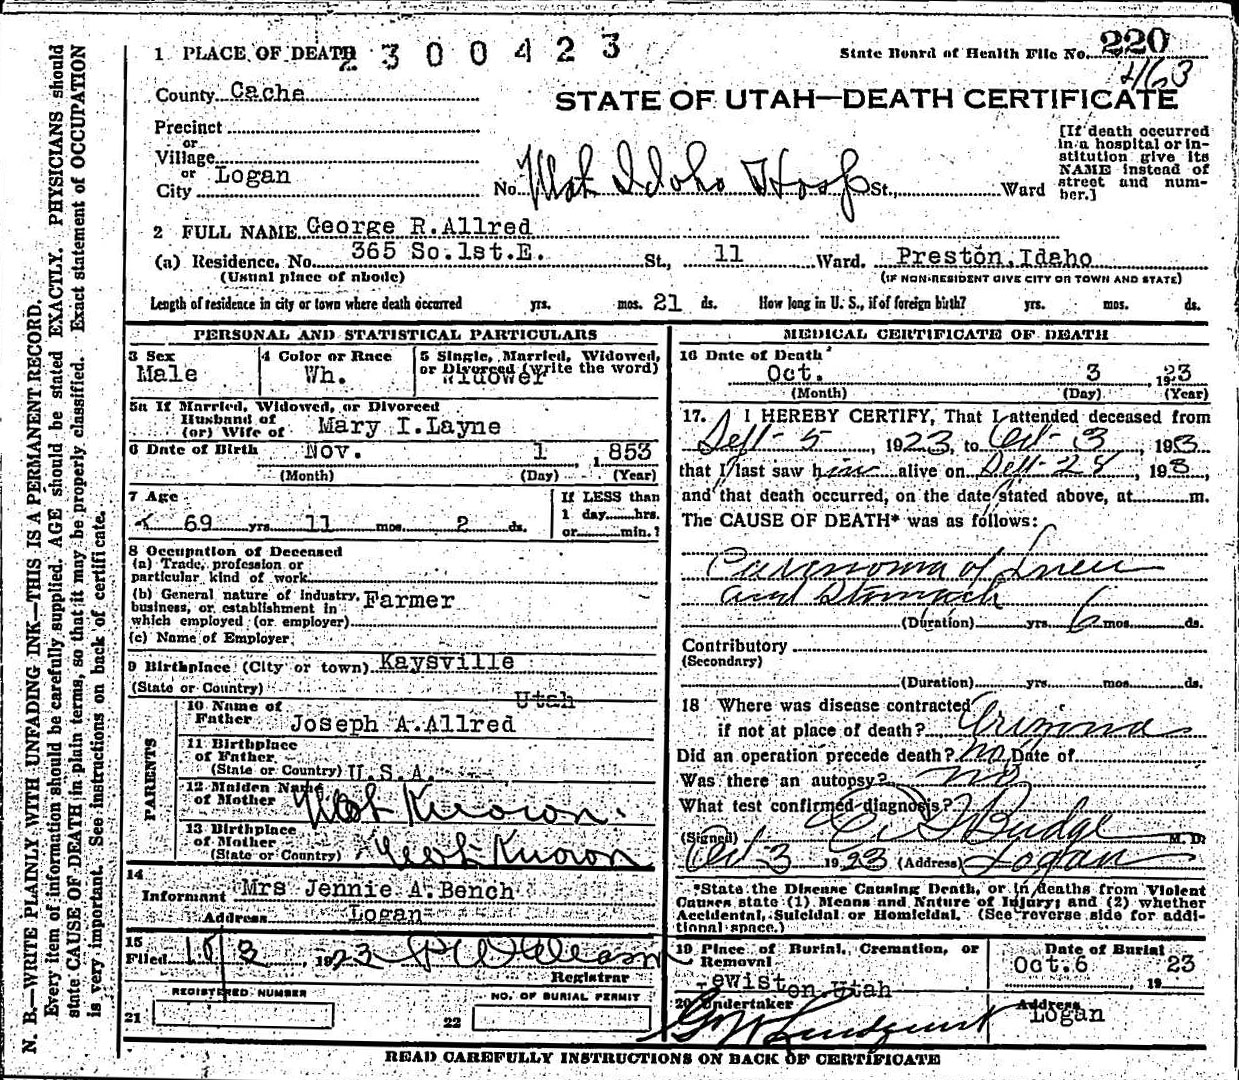 N. B.—WRITE PLAINLY WITH UNFADING INK—THIS IS A PERMANENT RECORD.
Every item of information should be carefully supplied. AGE should be stated EXACTLY. PHYSICIANS should
state CAUSE OF DEATH in plain terms, so that it may be properly classified. Exact statement of OCCUPATION
is very important. See instructions on back of certificate.
1 PLACE OF DEATH 2300423
State Board of Health File No. 220
463
County Cache
STATE OF UTAH—DEATH CERTIFICATE
Precinct
or
Village
or
City Logan
No. Idaho Hosp St., Ward
[If death occurred
in a hospital or in-
stitution give its
NAME instead of
street and num-
ber.]
2 FULL NAME George R.Allred
(a) Residence. No. 365 So.1st.E. St., 11 Ward. Preston,Idaho
(Usual place of abode) (IF NON-RESIDENT GIVE CITY OR TOWN AND STATE)
Length of residence in city or town where death occurred yrs. mos. 21 ds. How long in U. S., if of foreign birth? yrs. mos. ds.
PERSONAL AND STATISTICAL PARTICULARS
3 Sex
Male
4 Color or Race
Wh.
5 Single, Married, Widowed,
or Divorced (write the word)
Widower
5a If Married, Widowed, or Divorced
Husband of
(or) Wife of Mary I.Layne
6 Date of Birth Nov. 1 , 1853
(Month) (Day) (Year)
7 Age
69 yrs. 11 mos. 2 ds.
If LESS than
1 day hrs.
or min.?
8 Occupation of Deceased
(a) Trade, profession or
particular kind of work
(b) General nature of industry, Farmer
business, or establishment in
which employed (or employer)
(c) Name of Employer
9 Birthplace (City or town) Kaysville
(State or Country) Utah
PARENTS
10 Name of
Father Joseph A.Allred
11 Birthplace
of Father
(State or Country) U.S.A.
12 Maiden Name
of Mother Not Known.
13 Birthplace
of Mother
(State or Country) Not Known
14
Informant Mrs Jennie A.Bench
Address Logan
15
Filed 10/3 1923
Registrar
REGISTERED NUMBER
21
NO. OF BURIAL PERMIT
22
MEDICAL CERTIFICATE OF DEATH
16 Date of Death
Oct. 3 , 1923
(Month) (Day) (Year)
17. I HEREBY CERTIFY, That I attended deceased from
Sept-5, 1923, to Oct-3, 193
that I last saw him alive on Sept-28, 193,
and that death occurred, on the date stated above, at m.
The CAUSE OF DEATH* was as follows:
Carcinoma of Liver
and Stomach
(Duration) yrs. 6 mos. ds.
Contributory
(Secondary)
(Duration) yrs. mos. ds.
18 Where was disease contracted
if not at place of death? Arimona
Did an operation precede death? no Date of
Was there an autopsy? no
What test confirmed diagnosis?
(Signed) Budge M. D.
Oct-3 1923 (Address) Logan
*State the Disease Causing Death, or in deaths from Violent
Causes state (1) Means and Nature of Injury; and (2) whether
Accidental, Suicidal or Homicidal. (See reverse side for addi-
tional space.)
19 Place of Burial, Cremation, or
Removal
Lewiston Utah
Date of Burial
Oct.6 1923
20 Undertaker
G W Lundquist
Address
Logan
READ CAREFULLY INSTRUCTIONS ON BACK OF CERTIFICATE